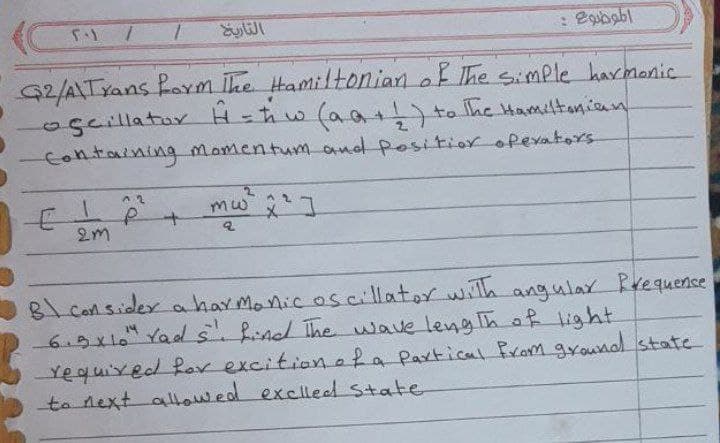 الموضوع :
التاريخ / / ٢٠١
Q2/A\ Transform The Hamiltonian of The simple harmonic
oscillator Ĥ = ħw (aa + 1/2) to The Hamiltonian
containing momentum and positior operators
[ 1/2m p̂² + mω²/2 x̂² ]
B\ consider a harmonic oscillator with angular frequence
6.9x10¹⁴ rad s⁻¹. find The wave length of light
required for excition of a partical from ground state
to next allowed exclled state